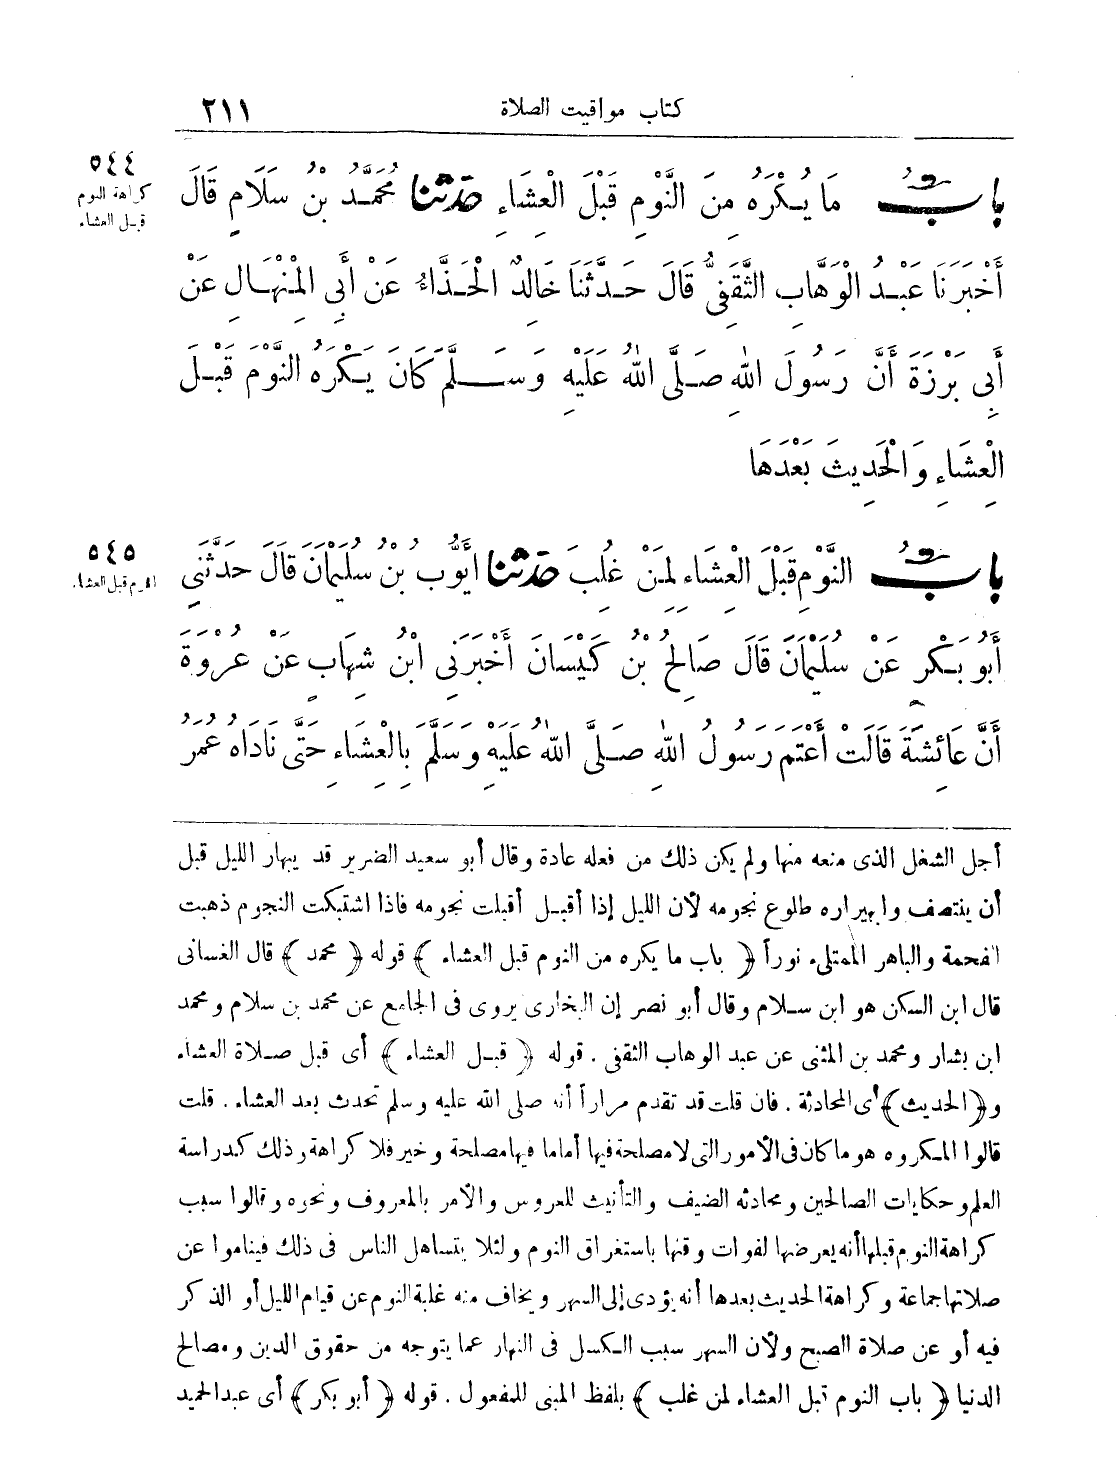 كتاب مواقيت الصلاة
٢١١
٥٤٤
كراهة النوم
قبل العشاء
بابُ مَا يُكْرَهُ مِنَ النَّوْمِ قَبْلَ الْعِشَاءِ حَدَّثَنَا مُحَمَّدُ بْنُ سَلَامٍ قَالَ
أَخْبَرَنَا عَبْدُ الْوَهَّابِ الثَّقَفِيُّ قَالَ حَدَّثَنَا خَالِدٌ الْحَذَّاءُ عَنْ أَبِي الْمِنْهَالِ عَنْ
أَبِي بَرْزَةَ أَنَّ رَسُولَ اللهِ صَلَّى اللهُ عَلَيْهِ وَسَلَّمَ كَانَ يَكْرَهُ النَّوْمَ قَبْلَ
الْعِشَاءِ وَالْحَدِيثَ بَعْدَهَا
٥٤٥
النوم قبل العشاء
بابُ النَّوْمِ قَبْلَ الْعِشَاءِ لِمَنْ غُلِبَ حَدَّثَنَا أَيُّوبُ بْنُ سُلَيْمَانَ قَالَ حَدَّثَنِي
أَبُو بَكْرٍ عَنْ سُلَيْمَانَ قَالَ صَالِحُ بْنُ كَيْسَانَ أَخْبَرَنِي ابْنُ شِهَابٍ عَنْ عُرْوَةَ
أَنَّ عَائِشَةَ قَالَتْ أَعْتَمَ رَسُولُ اللهِ صَلَّى اللهُ عَلَيْهِ وَسَلَّمَ بِالْعِشَاءِ حَتَّى نَادَاهُ عُمَرُ
أجل الشغل الذى منعه منها ولم يكن ذلك من فعله عادة وقال أبو سعيد الضرير قد يبهار الليل قبل
أن ينتصف وابهيراره طلوع نجومه لأن الليل إذا أقبل أقبلت نجومه فاذا اشتبكت النجوم ذهبت
الفحمة والباهر الممتلىء نوراً ﴿ باب ما يكره من النوم قبل العشاء ﴾ قوله ﴿ محمد ﴾ قال الغسانى
قال ابن السكن هو ابن سلام وقال أبو نصر إن البخارى يروى فى الجامع عن محمد بن سلام ومحمد
ابن بشار ومحمد بن المثنى عن عبد الوهاب الثقفى . قوله ﴿ قبل العشاء ﴾ أى قبل صلاة العشاء
و﴿الحديث﴾ أى المحادثة . فان قلت قد تقدم مراراً أنه صلى الله عليه وسلم تحدث بعد العشاء . قلت
قالوا المكروه هو ما كان فى الأمور التى لا مصلحة فيها أما ما فيها مصلحة وخير فلا كراهة وذلك كدراسة
العلم وحكايات الصالحين ومحادثه الضيف والتأنيث للعروس والأمر بالمعروف ونحوه وقالوا سبب
كراهة النوم قبلها أنه يعرضها لفوات وقتها باستغراق النوم ولئلا يتساهل الناس فى ذلك فيناموا عن
صلاتها جماعة وكراهة الحديث بعدها أنه يؤدى إلى السهر ويخاف منه غلبة النوم عن قيام الليل أو الذكر
فيه أو عن صلاة الصبح ولأن السهر سبب الكسل فى النهار عما يتوجه من حقوق الدين ومصالح
الدنيا ﴿ باب النوم قبل العشاء لمن غلب ﴾ بلفظ المبنى للمفعول . قوله ﴿ أبو بكر ﴾ أى عبد الحميد